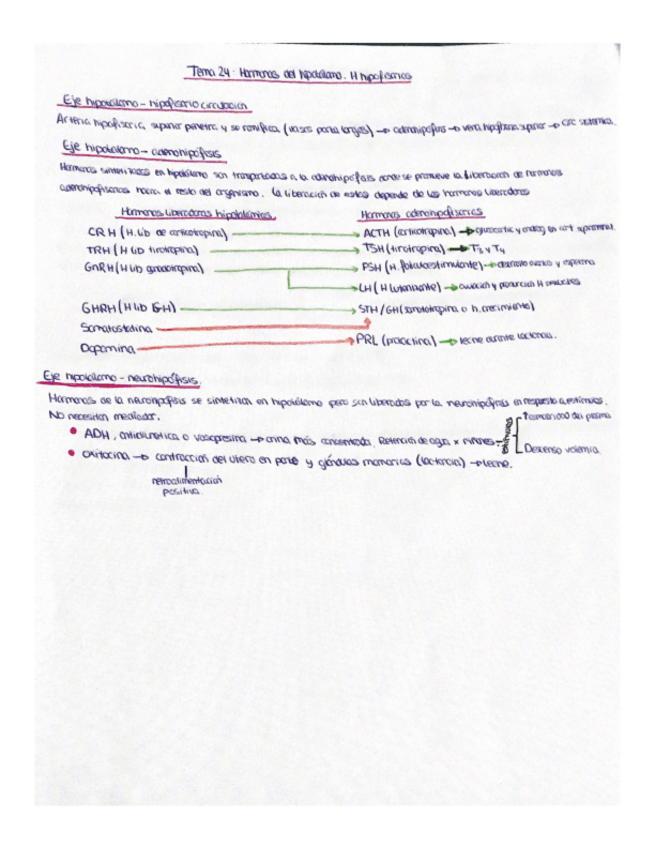 Tema 24: Hormonas del hipotálamo. H hipofisarias
Eje hipotálamo - hipofisario circulación
Arteria hipofisaria superior penetra y se ramifica (vasos porta largos) → adenohipófisis → vena hipofisaria superior → circ sistémica.
Eje hipotálamo - adenohipófisis
Hormonas sintetizadas en hipotálamo son transportadas a la adenohipófisis donde se promueve la liberación de hormonas
adenohipofisarias hacia el resto del organismo. La liberación de estas depende de las hormonas liberadoras
Hormonas liberadoras hipotalámicas
Hormonas adenohipofisarias
CRH (H. lib de corticotropina) → ACTH (corticotropina) → en cort suprarrenal.
TRH (H lib tirotropina) → TSH (tirotropina) → T3 y T4
GnRH (H lib gonadotropina) → FSH (H. foliculoestimulante) → desarrollo ovárico y esperma
LH (H luteinizante) → ovulación y producción H sexuales
GHRH (H lib GH) → STH / GH (somatotropina o h. crecimiento)
Somatostatina
Dopamina → PRL (prolactina) → leche durante lactancia.
Eje hipotálamo - neurohipófisis.
Hormonas de la neurohipófisis se sintetizan en hipotálamo pero son liberadas por la neurohipófisis en respuesta a estímulos.
No necesitan mediador.
• ADH, antidiurética o vasopresina → orina más concentrada. Retención de agua x riñones - estímulos [ ↑osmolaridad del plasma
Descenso volemia.
• Oxitocina → contracción del útero en parto y glándulas mamarias (lactancia) → leche.
retroalimentación
positiva.